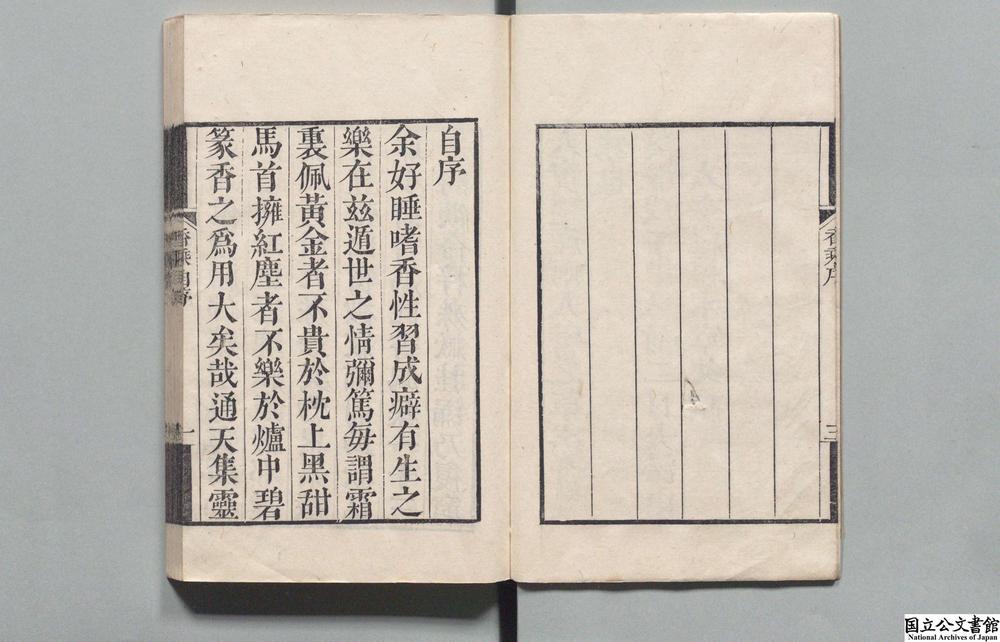 香乘序
三
自序
余好睡嗜香性習成癖有生之
樂在茲遁世之情彌篤每謂霜
裏佩黃金者不貴於枕上黑甜
馬首擁紅塵者不樂於爐中碧
篆香之爲用大矣哉通天集靈
香乘自序
一
国立公文書館
National Archives of Japan